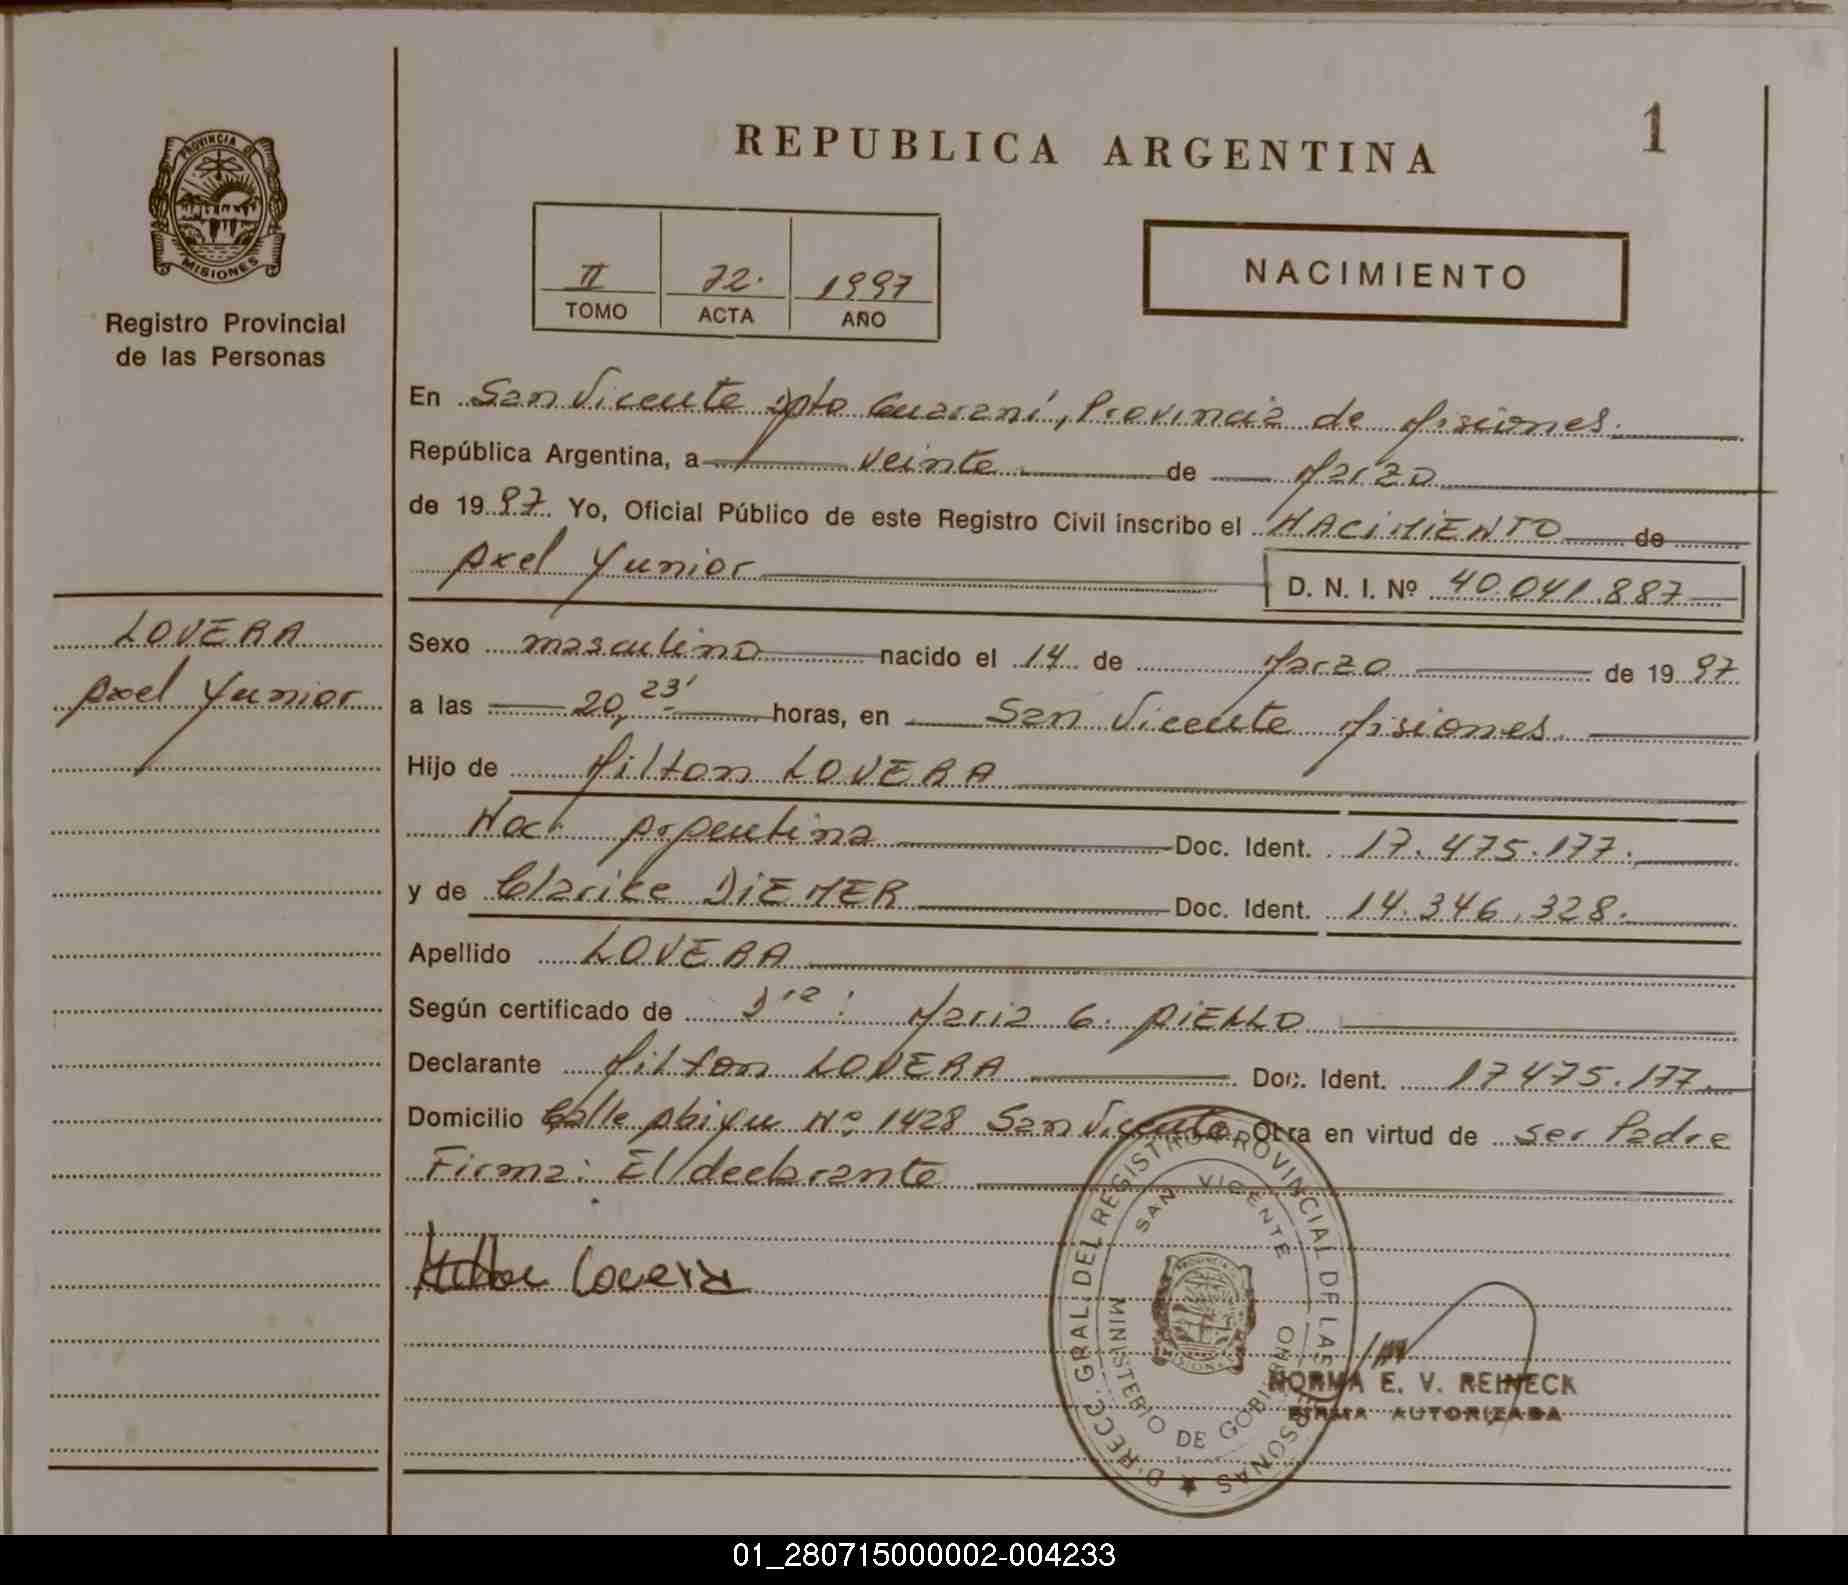 REPUBLICA ARGENTINA
1
PROVINCIA DE
MISIONES
Registro Provincial
de las Personas
II 72. 1997
TOMO ACTA AÑO
NACIMIENTO
En San Vicente Dpto Guaraní, Provincia de Misiones.
República Argentina, a veinte de Marzo
de 1997. Yo, Oficial Público de este Registro Civil inscribo el NACIMIENTO de
Axel Yunior
D. N. I. Nº 40.041.887
LOVERA
Axel Yunior
Sexo masculino nacido el 14 de Marzo de 1997
a las 20,23' horas, en San Vicente Misiones.
Hijo de Milton LOVERA
Nac. Argentina Doc. Ident. 17.475.177.
y de Clarice DIEMER Doc. Ident. 14.346.328.
Apellido LOVERA
Según certificado de Dra: Maria G. AIELLO
Declarante Milton LOVERA Doc. Ident. 17475.177.
Domicilio Calle Abiyu Nº 1428 San Vicente Obra en virtud de ser Padre
Firma: El declarante
Lovera
DIRECC. GRAL. DEL REGISTRO PROVINCIAL DE LAS PERSONAS
SAN VICENTE
MINISTERIO DE GOBIERNO
NORMA E. V. REINECK
FIRMA AUTORIZADA
01_280715000002-004233